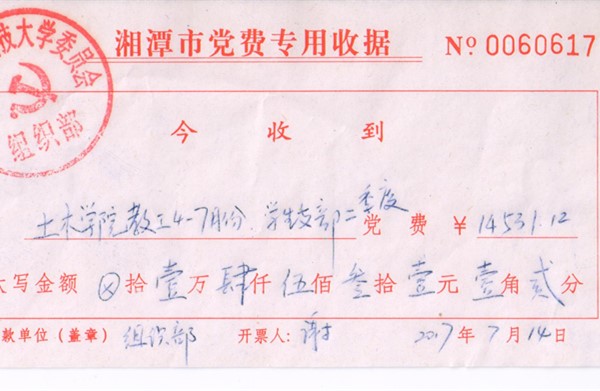 湘潭市党费专用收据 № 0060617
技大学委员会
组织部
今收到
土木学院教工4-7月份、学生支部二季度党费 ¥14531.12
大写金额 ⊗拾壹万肆仟伍佰叁拾壹元壹角贰分
款单位(盖章) 组织部 开票人: 谢 2017年7月14日